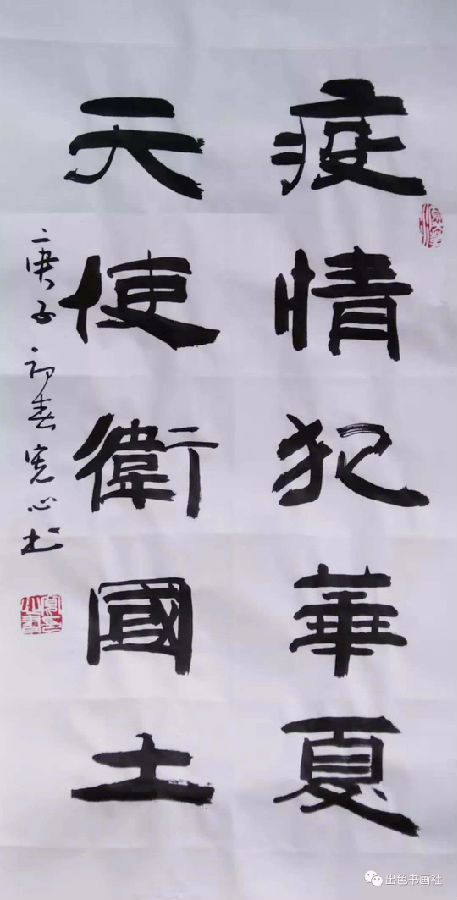 疫情犯華夏
天使衛國土
庚子初春宪心书
出色书画社